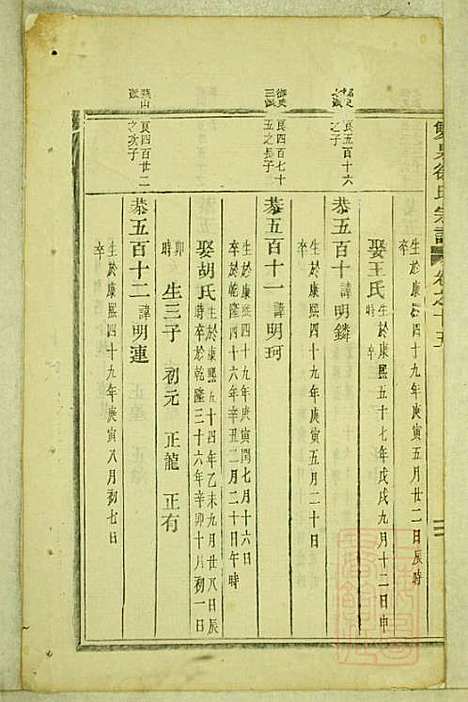 徐氏宗譜
卷之十五
生於康熙四十九年庚寅五月廿二日辰時
卒
娶王氏生於康熙五十七年戊戌九月十二日申
時卒
良五百十六
之子
恭五百十 諱明鏻
生於康熙四十九年庚寅五月二十日
卒
良四百七十
五之長子
恭五百十一 諱明珂
生於康熙四十九年庚寅閏七月十六日
卒於乾隆四十六年辛丑二月二十日午時
娶胡氏生於康熙五十四年乙未九月廿八日辰
時卒於乾隆三十六年辛卯十月初一日
卯時 生三子 初元 正龍 正有
良四百廿二
之次子
恭五百十二 諱明連
生於康熙四十九年庚寅八月初七日
卒